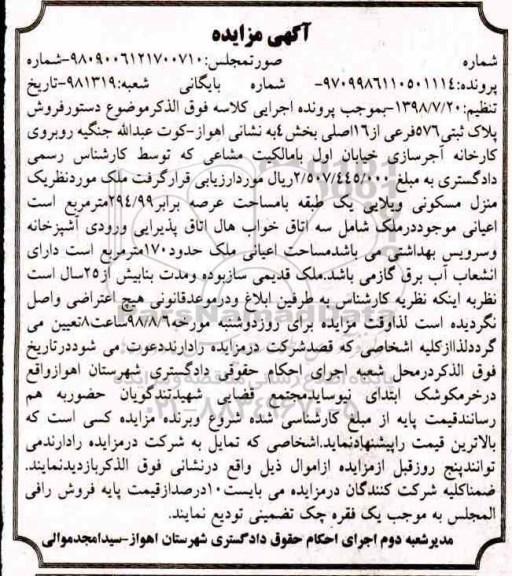 آگهی مزایده
شماره صورتمجلس:۹۸۰۹۰۰۶۱۲۱۷۰۰۷۱۰-شماره
پرونده:۹۷۰۹۹۸۶۱۱۰۵۰۱۱۱۴- شماره بایگانی شعبه:۹۸۱۳۱۹-تاریخ
تنظیم:۱۳۹۸/۷/۲۰-بموجب پرونده اجرایی کلاسه فوق الذکرموضوع دستورفروش
پلاک ثبتی۵۷۶فرعی از۱۶اصلی بخش۴به نشانی اهواز-کوت عبدالله جنگیه روبروی
کارخانه آجرسازی خیابان اول بامالکیت مشاعی که توسط کارشناس رسمی
دادگستری به مبلغ ۲/۵۰۷/۴۴۵/۰۰۰ریال موردارزیابی قرارگرفت ملک موردنظریک
منزل مسکونی ویلایی یک طبقه بامساحت عرصه برابر۲۹۴/۹۹مترمربع است
اعیانی موجوددرملک شامل سه اتاق خواب هال اتاق پذیرایی ورودی آشپزخانه
وسرویس بهداشتی می باشدمساحت اعیانی ملک حدود۱۷۰مترمربع است دارای
انشعاب آب برق گازمی باشد.ملک قدیمی سازبوده ومدت بنایش از۲۵سال است
نظربه اینکه نظریه کارشناس به طرفین ابلاغ ودرموعدقانونی هیچ اعتراضی واصل
نگردیده است لذاوقت مزایده برای روزدوشنبه مورخه۹۸/۸/۶ساعت۸تعیین می
گرددلذاازکلیه اشخاصی که قصدشرکت درمزایده رادارنددعوت می شوددرتاریخ
فوق الذکردرمحل شعبه اجرای احکام حقوقی دادگستری شهرستان اهوازواقع
درخرمکوشک ابتدای نیوسایدمجتمع قضایی شهیدتندگویان حضوربه هم
رسانندقیمت پایه از مبلغ کارشناسی شده شروع وبرنده مزایده کسی است که
بالاترین قیمت راپیشنهادنماید.اشخاصی که تمایل به شرکت درمزایده رادارندمی
توانندپنج روزقبل ازمزایده ازاموال ذیل واقع درنشانی فوق الذکربازدیدنمایند.
ضمناکلیه شرکت کنندگان درمزایده می بایست۱۰درصدازقیمت پایه فروش رافی
المجلس به موجب یک فقره چک تضمینی تودیع نمایند.
مدیرشعبه دوم اجرای احکام حقوق دادگستری شهرستان اهواز-سیدامجدموالی